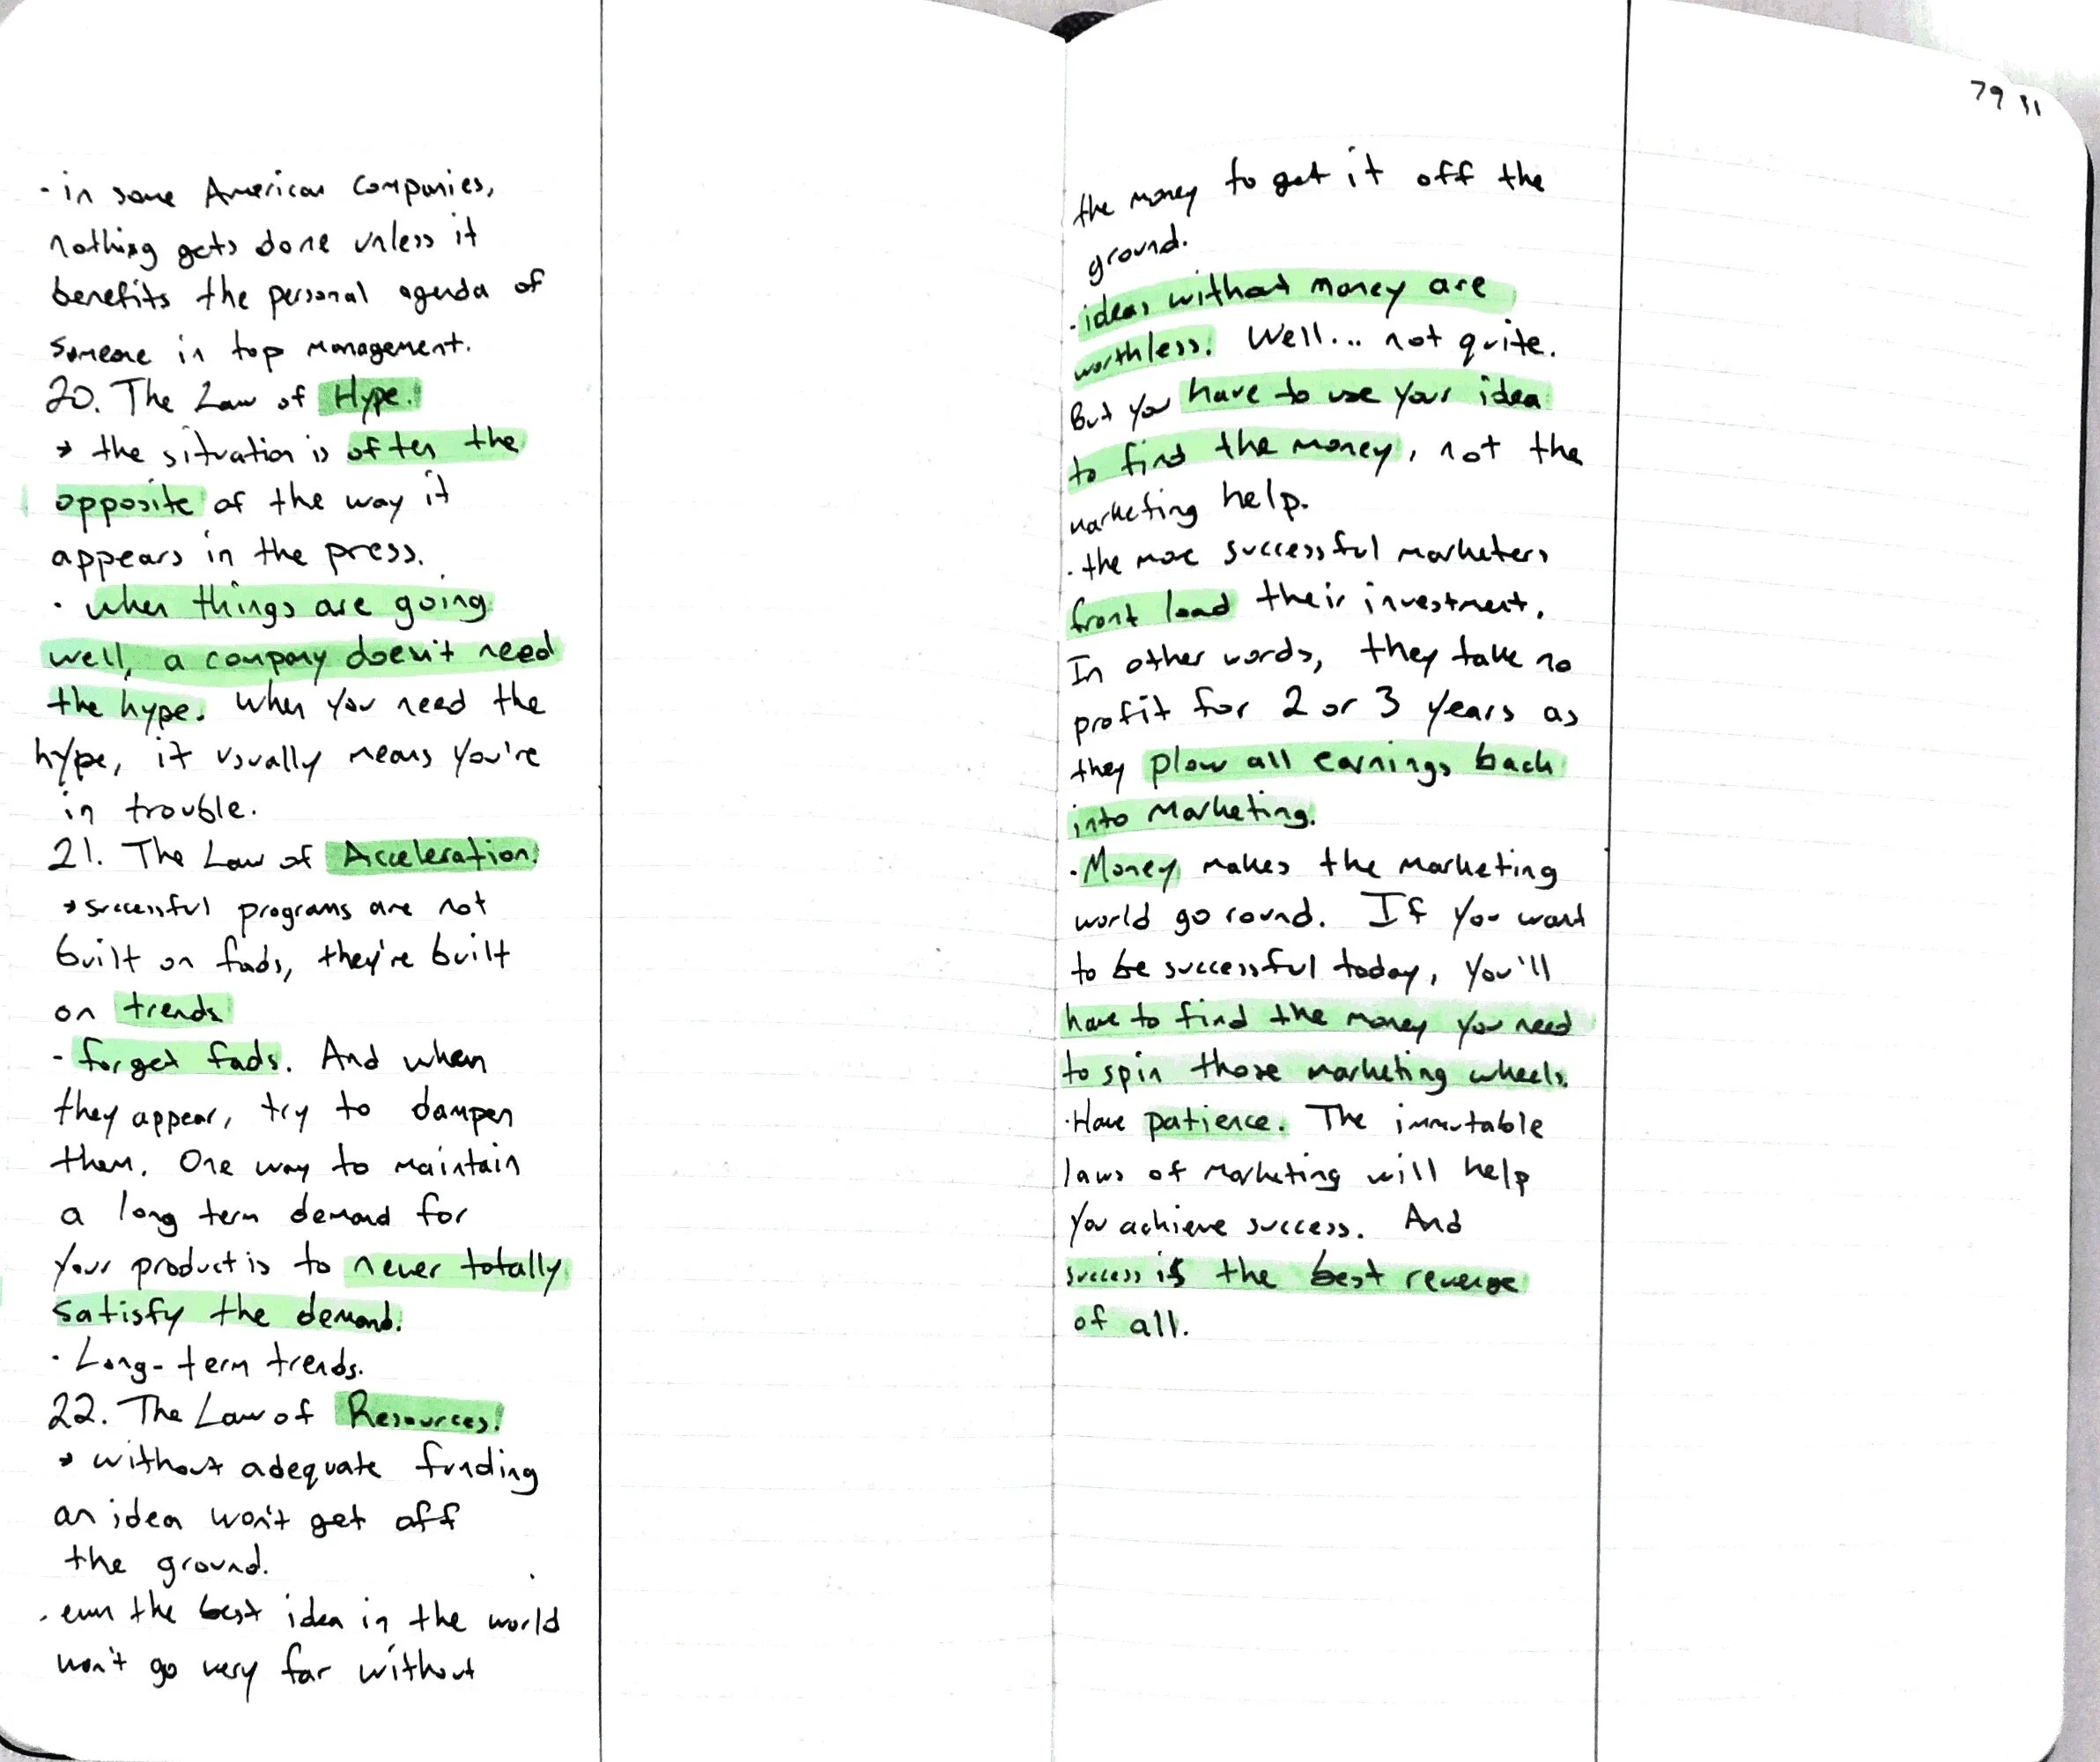 - in some American companies,
nothing gets done unless it
benefits the personal agenda of
someone in top management.
20. The Law of Hype.
→ the situation is often the
opposite of the way it
appears in the press.
· when things are going
well, a company doesn't need
the hype. When you need the
hype, it usually means you're
in trouble.
21. The Law of Acceleration.
→ successful programs are not
built on fads, they're built
on trends
- forget fads. And when
they appear, try to dampen
them. One way to maintain
a long term demand for
your product is to never totally
satisfy the demand.
· Long-term trends.
22. The Law of Resources.
→ without adequate funding
an idea won't get off
the ground.
· even the best idea in the world
won't go very far without
79
the money to get it off the
ground.
· ideas without money are
worthless. Well... not quite.
But you have to use your idea
to find the money, not the
marketing help.
· the more successful marketers
front load their investment.
In other words, they take no
profit for 2 or 3 years as
they plow all earnings back
into marketing.
· Money makes the marketing
world go round. If you want
to be successful today, you'll
have to find the money you need
to spin those marketing wheels.
· Have patience. The immutable
laws of marketing will help
you achieve success. And
success is the best revenge
of all.